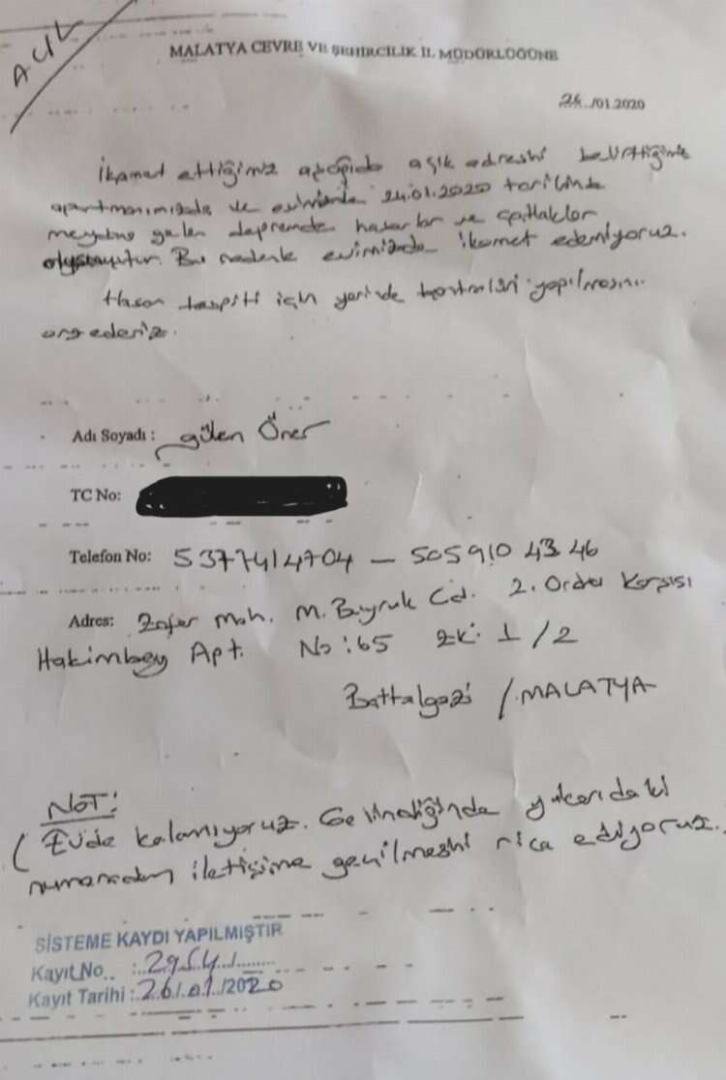 ACİL
MALATYA ÇEVRE VE ŞEHİRCİLİK İL MÜDÜRLÜĞÜNE
26../01.2020
İkamet ettiğimiz aşağıda açık adresini belirttiğimiz
apartmanımızda ve evimizde 24.01.2020 tarihinde
meydana gelen depremde hasarlar ve çatlaklar
oluşmuştur. Bu nedenle evimizde ikamet edemiyoruz.
Hasar tespiti için yerinde kontrolleri yapılmasını
arz ederiz.
Adı Soyadı : Gülen Öner
TC No:
Telefon No: 5377414704 – 505 910 43 46
Adres: Zafer Mah. M. Buyruk Cd. 2. Ordu Karşısı
Hakimbey Apt. No:65 2K: 1/2
Battalgazi / MALATYA
NOT:
( Evde kalamıyoruz. Gelindiğinde yukarıdaki
numaradan iletişime geçilmesini rica ediyoruz.
SİSTEME KAYDI YAPILMIŞTIR
Kayıt No.. :..2954../........
Kayıt Tarihi :.26/.01./2020